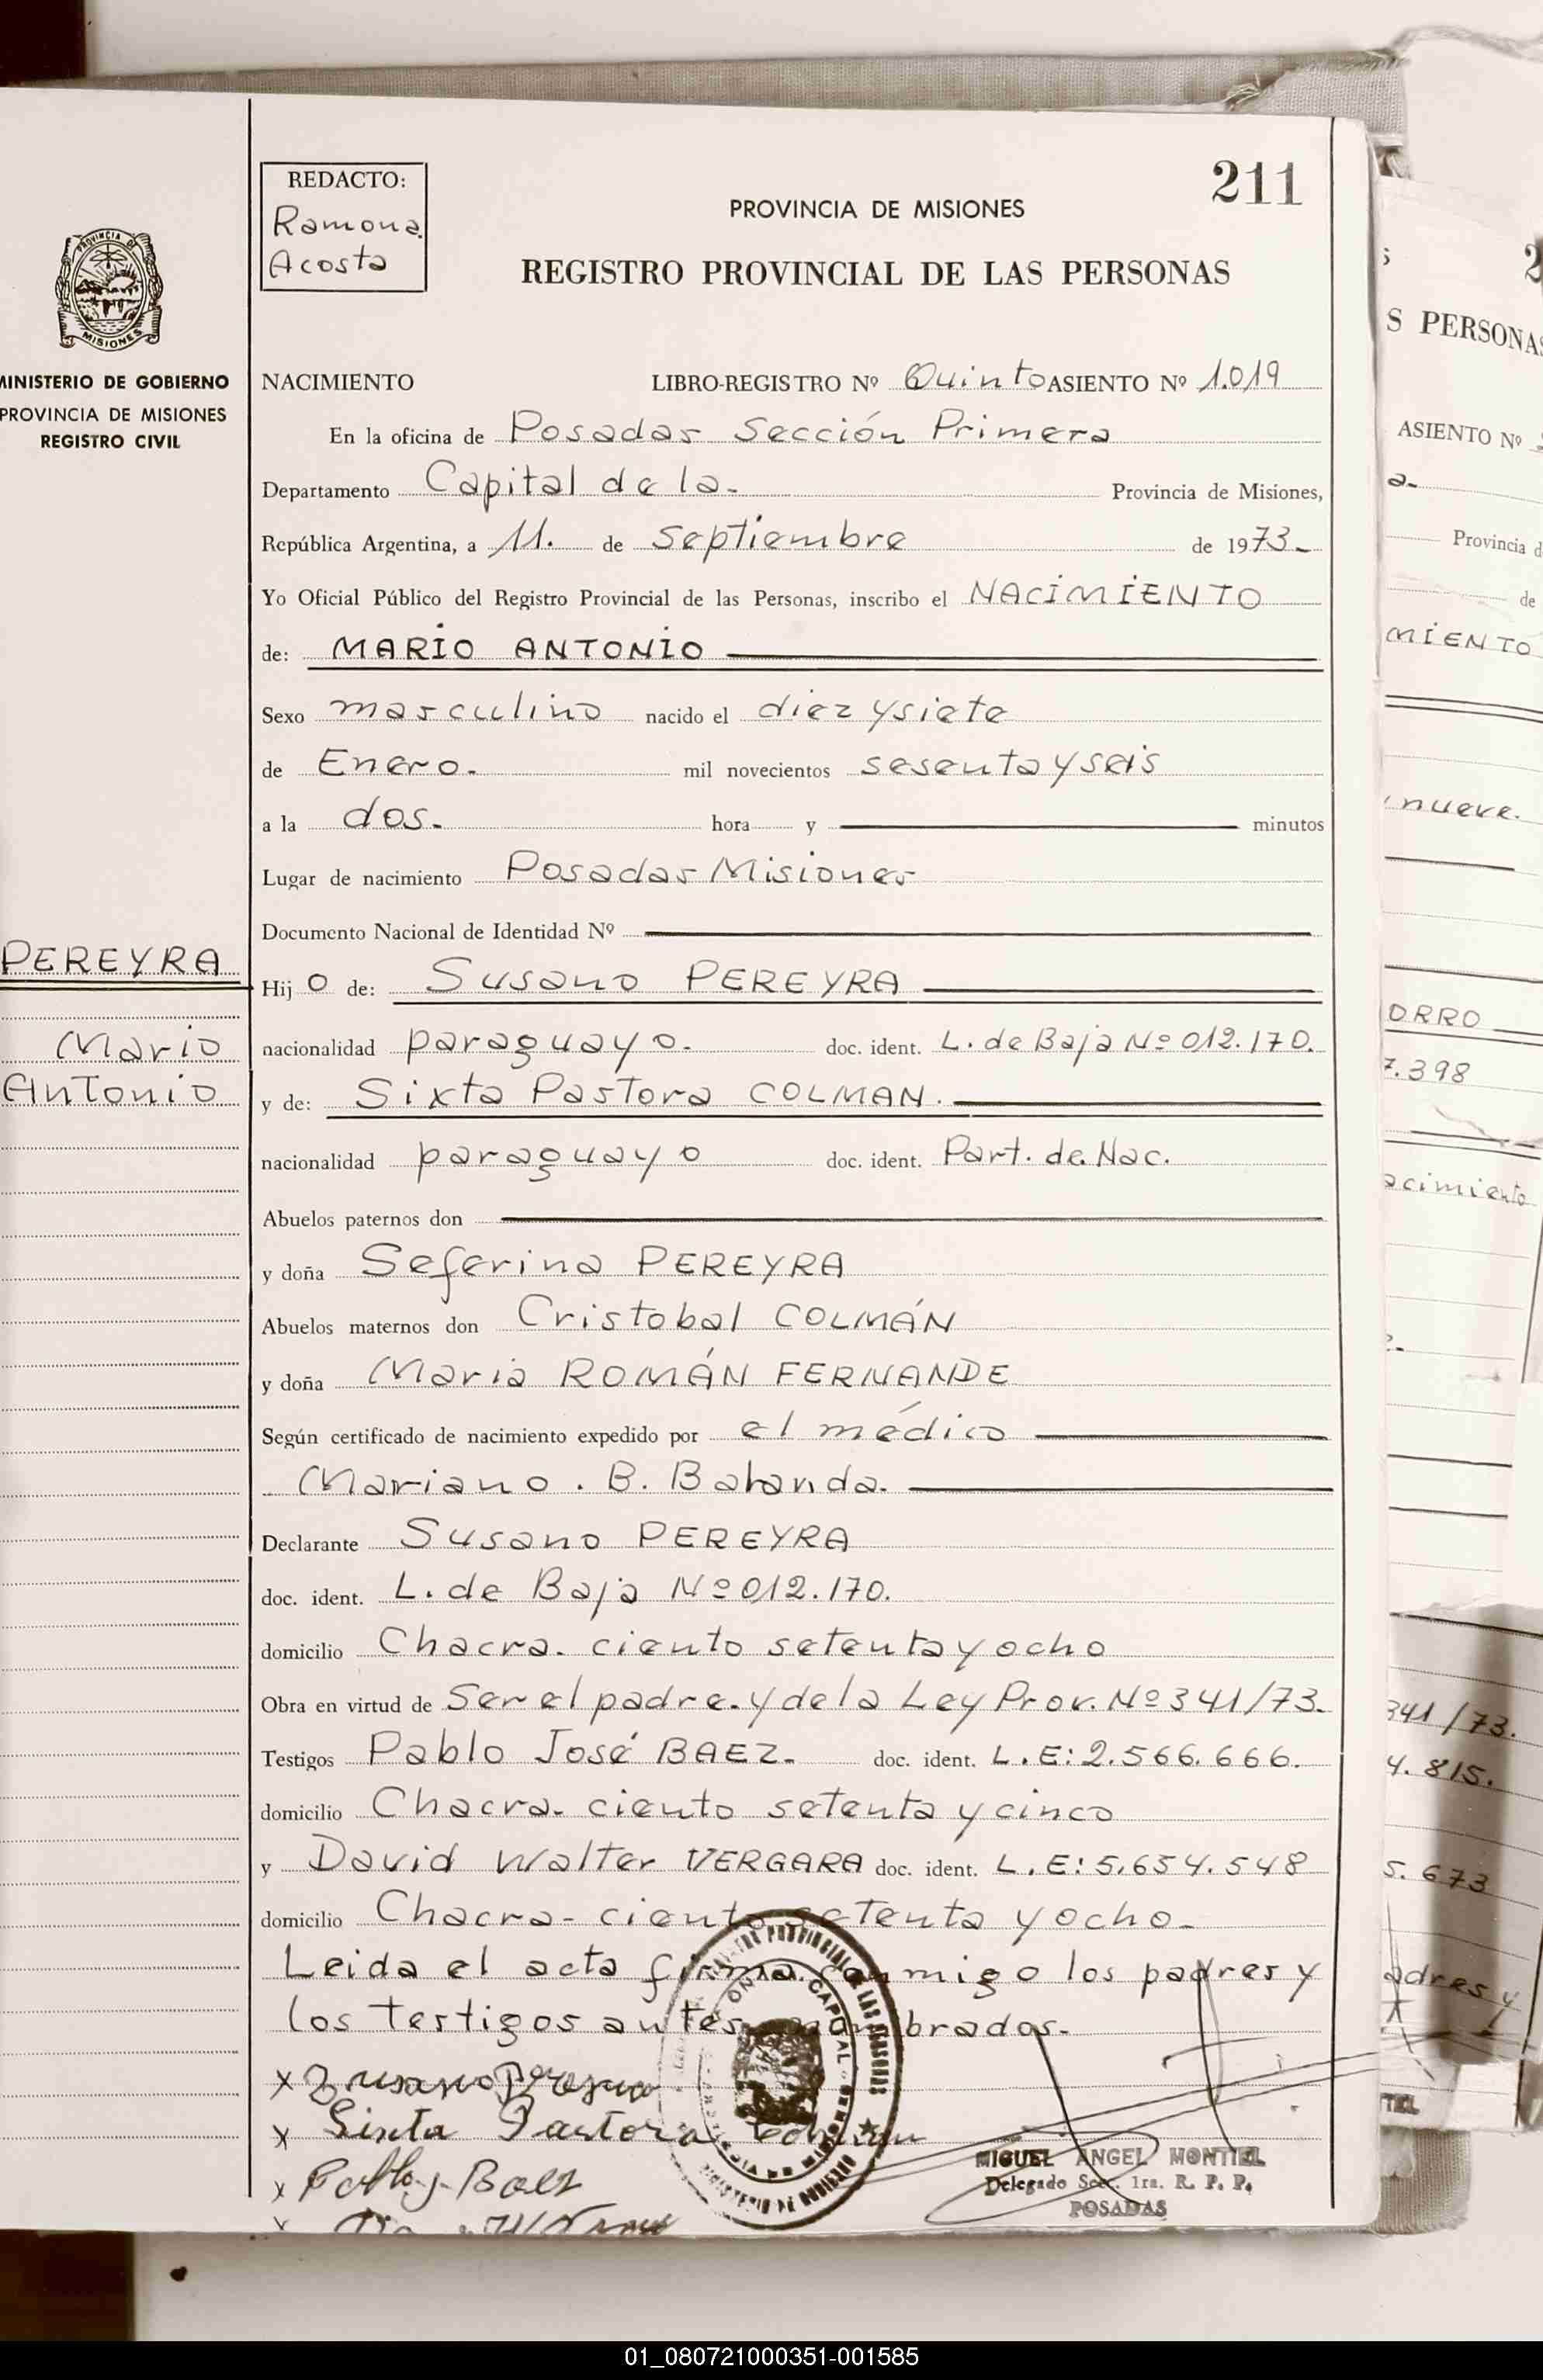 REDACTO:
Ramona
Acosta
211
PROVINCIA DE MISIONES
REGISTRO PROVINCIAL DE LAS PERSONAS
PROVINCIA DE
MISIONES
MINISTERIO DE GOBIERNO
PROVINCIA DE MISIONES
REGISTRO CIVIL
NACIMIENTO LIBRO-REGISTRO Nº Quinto ASIENTO Nº 1.019
En la oficina de Posadas Sección Primera
Departamento Capital de la- Provincia de Misiones,
República Argentina, a 11. de septiembre de 1973-
Yo Oficial Público del Registro Provincial de las Personas, inscribo el NACIMIENTO
de: MARIO ANTONIO
Sexo masculino nacido el diez y siete
de Enero. mil novecientos sesenta y seis
a la dos. hora y minutos
Lugar de nacimiento Posadas Misiones
Documento Nacional de Identidad Nº
PEREYRA
Mario
Antonio
Hij o de: Susano PEREYRA
nacionalidad paraguayo. doc. ident. L. de Baja Nº 012.170.
y de: Sixta Pastora COLMAN.
nacionalidad paraguayo doc. ident. Part. de Nac.
Abuelos paternos don
y doña Seferina PEREYRA
Abuelos maternos don Cristobal COLMÁN
y doña Maria ROMÁN FERNANDE
Según certificado de nacimiento expedido por el médico
Mariano . B. Balanda.
Declarante Susano PEREYRA
doc. ident. L. de Baja Nº 012.170.
domicilio Chacra. ciento setenta y ocho
Obra en virtud de Ser el padre. y de la Ley Prov. Nº 341/73.
Testigos Pablo José BAEZ. doc. ident. L.E: 2.566.666.
domicilio Chacra. ciento setenta y cinco
y David Walter VERGARA doc. ident. L.E: 5.654.548
domicilio Chacra- ciento setenta y ocho-
Leida el acta firma conmigo los padres y
los testigos antes nombrados.
x Susano Pereyra
x Sixta Pastora Colman
x Pablo J. Baez
x
MIGUEL ANGEL MONTIEL
Delegado Sec. 1ra. R. P. P.
POSADAS
S PERSONAS
ASIENTO Nº
a-
Provincia d
de
MIENTO
nueve.
ORRO
7.398
acimiento
341/73.
4.815.
5.673
adres y
TEL
01_080721000351-001585